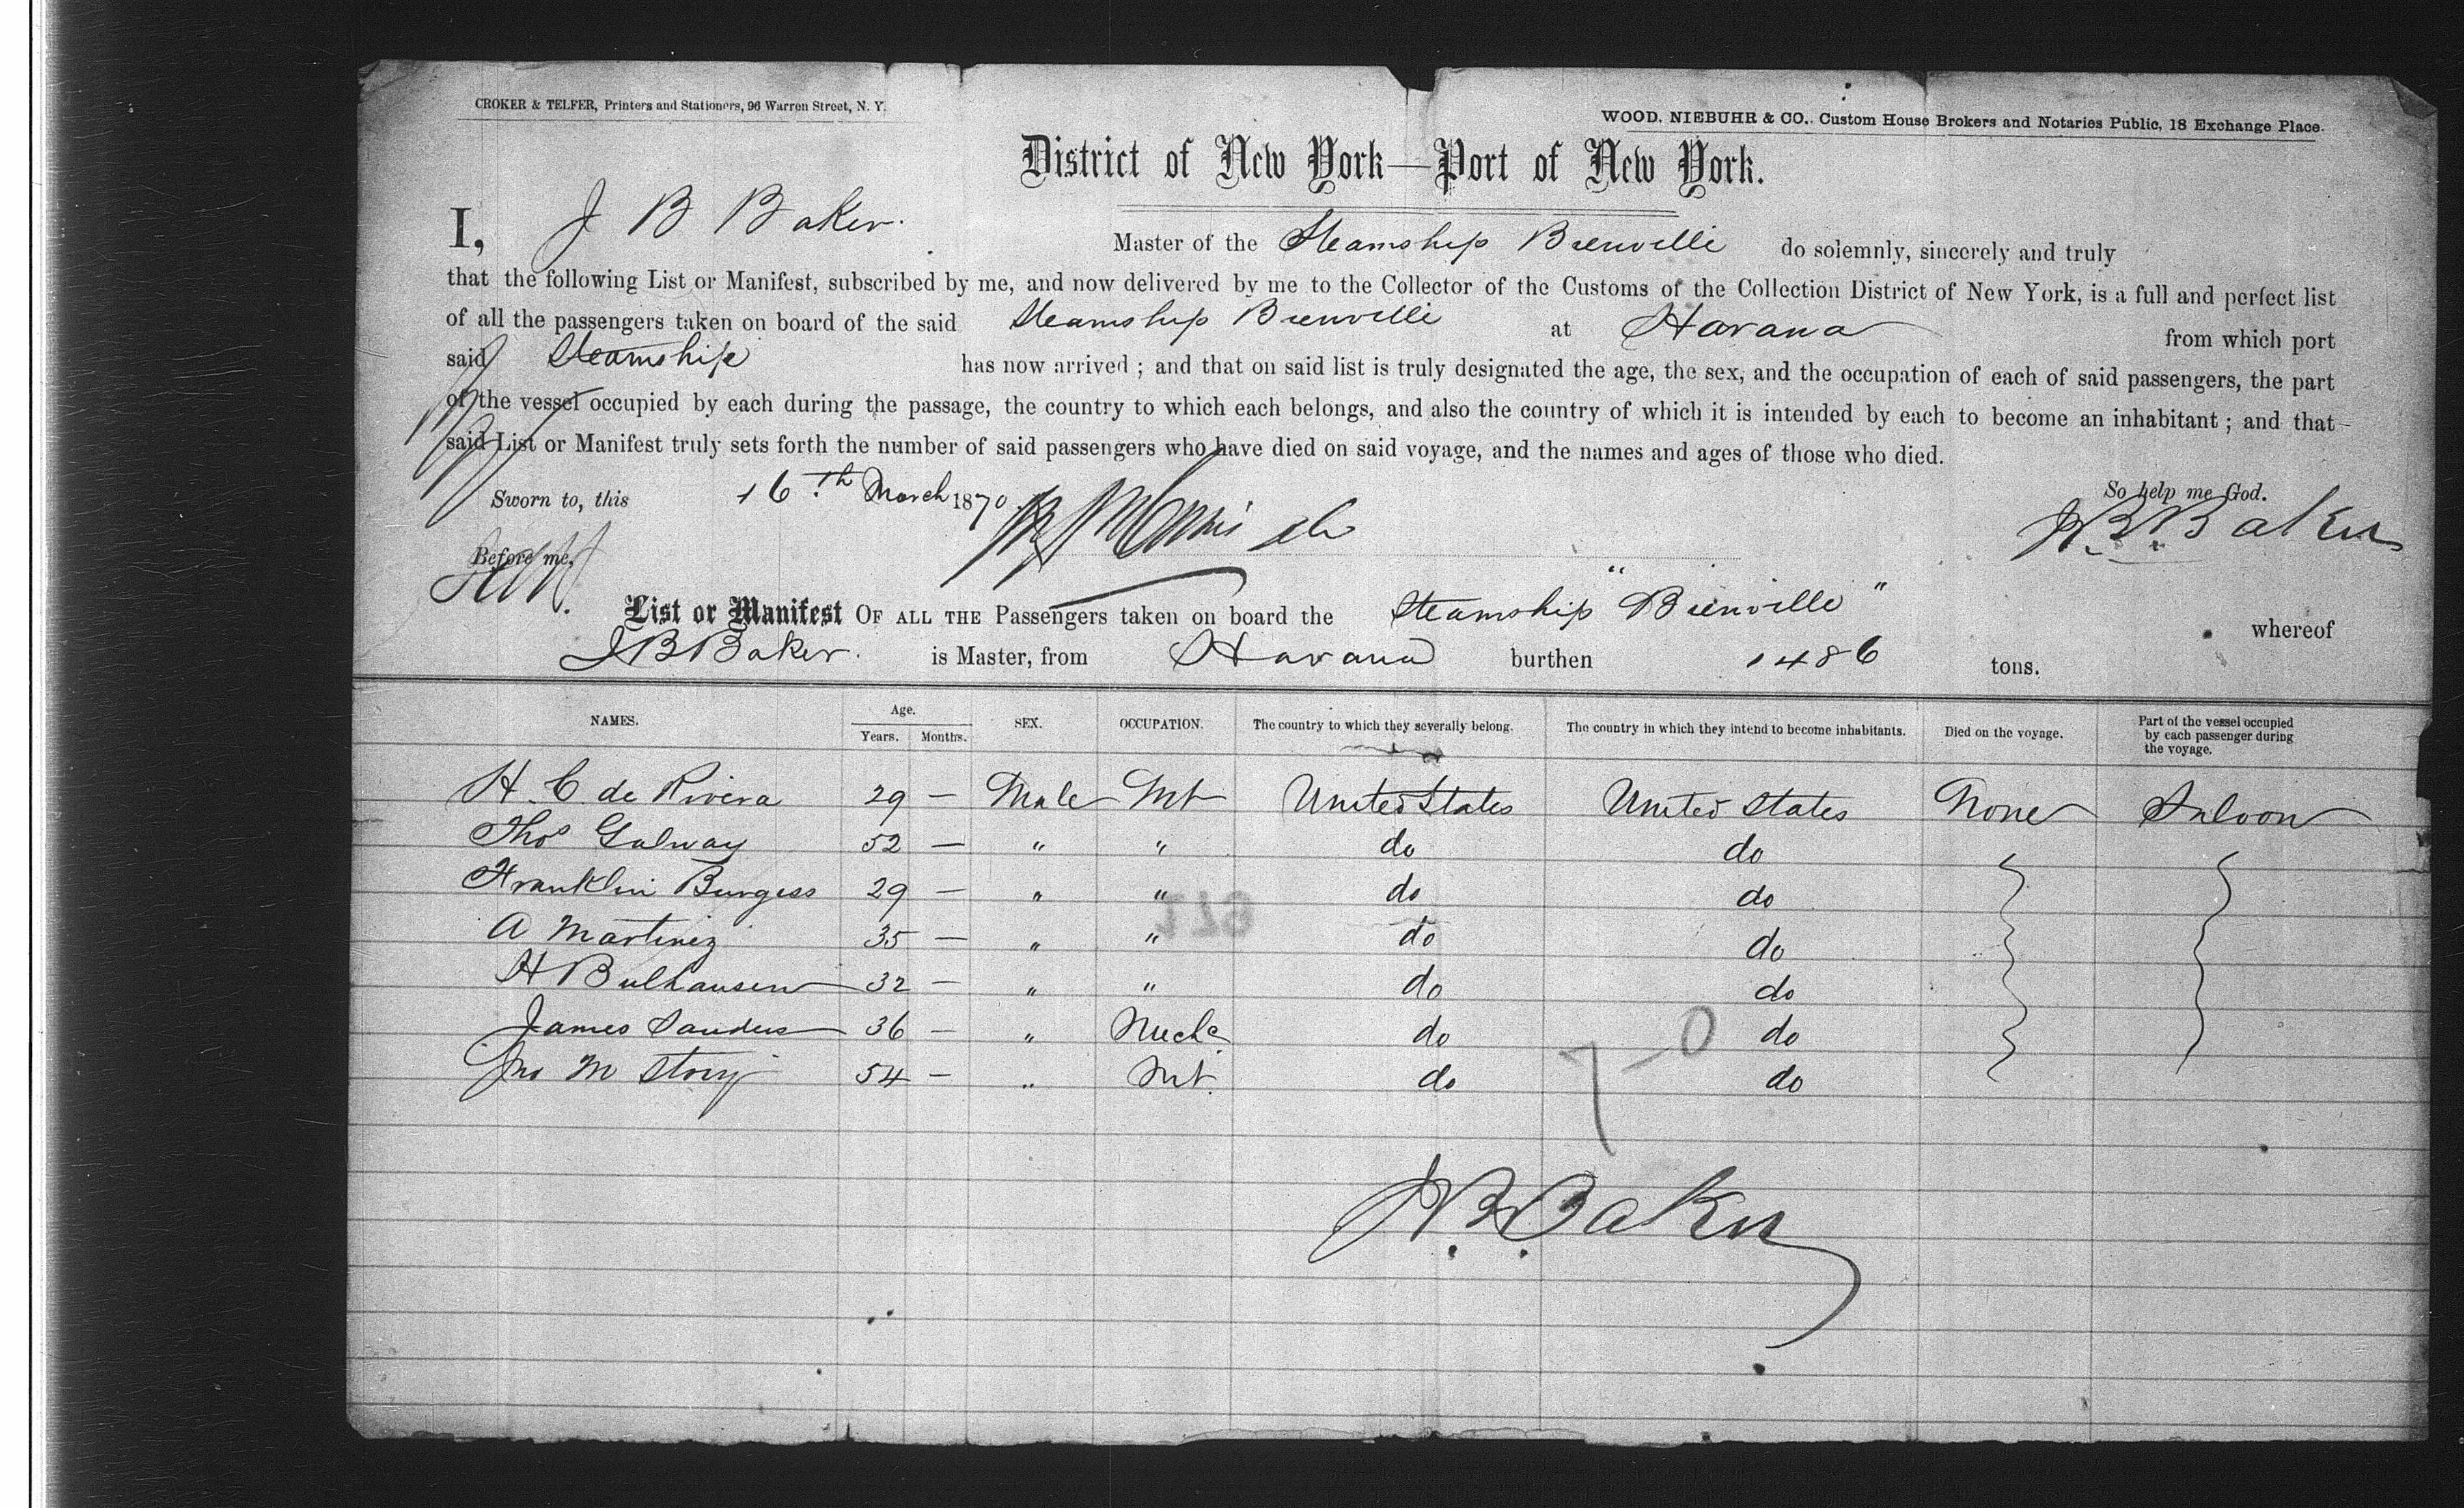 CROKER & TELFER, Printers and Stationers, 96 Warren Street, N. Y.
WOOD, NIEBUHR & CO., Custom House Brokers and Notaries Public, 18 Exchange Place.
District of New York—Port of New York.
I, J B Baker. Master of the Steamship Bienville do solemnly, sincerely and truly
that the following List or Manifest, subscribed by me, and now delivered by me to the Collector of the Customs of the Collection District of New York, is a full and perfect list
of all the passengers taken on board of the said Steamship Bienville at Havana from which port
said Steamship has now arrived ; and that on said list is truly designated the age, the sex, and the occupation of each of said passengers, the part
of the vessel occupied by each during the passage, the country to which each belongs, and also the country of which it is intended by each to become an inhabitant ; and that
said List or Manifest truly sets forth the number of said passengers who have died on said voyage, and the names and ages of those who died.
Sworn to, this 16th March 1870 So help me God.
J. B. Baker
Before me,
List or Manifest OF ALL THE Passengers taken on board the Steamship "Bienville" whereof
J B Baker. is Master, from Havana burthen 1486 tons.
NAMES. Age. Years. Months. SEX. OCCUPATION. The country to which they severally belong. The country in which they intend to become inhabitants. Died on the voyage. Part of the vessel occupied by each passenger during the voyage.
H. C. de Rivera 29 — Male Mt United States United States None Saloon
Thos Galway 52 — " " do do
Franklin Burgess 29 — " " do do
A Martinez 35 — " " do do
H 32 — " " do do
James Sanders 36 — " Mech do do
Jno M Story 54 — " Mt. do do
7–0
J. B. Baker